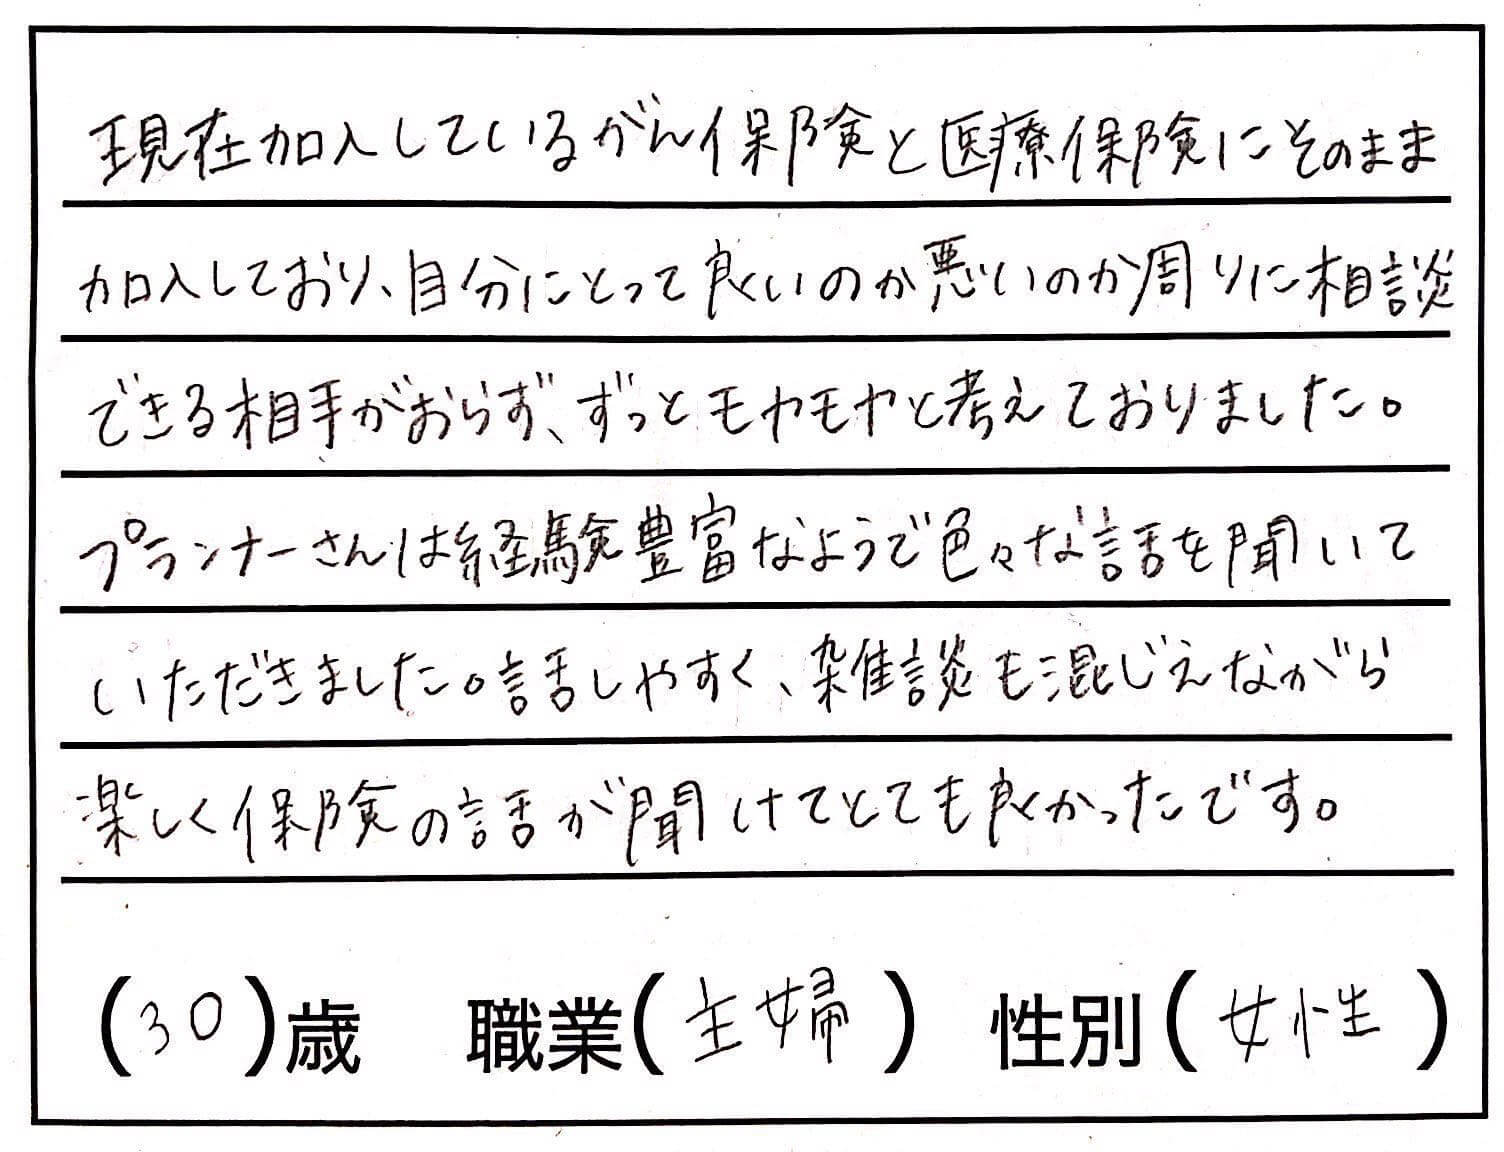 現在加入しているがん保険と医療保険にそのまま
加入しており、自分にとって良いのか悪いのか周りに相談
できる相手がおらず、ずっとモヤモヤと考えておりました。
プランナーさんは経験豊富なようで色々な話を聞いて
いただきました。話しやすく、雑談も混じえながら
楽しく保険の話が聞けてとても良かったです。
(30)歳 職業(主婦) 性別(女性)